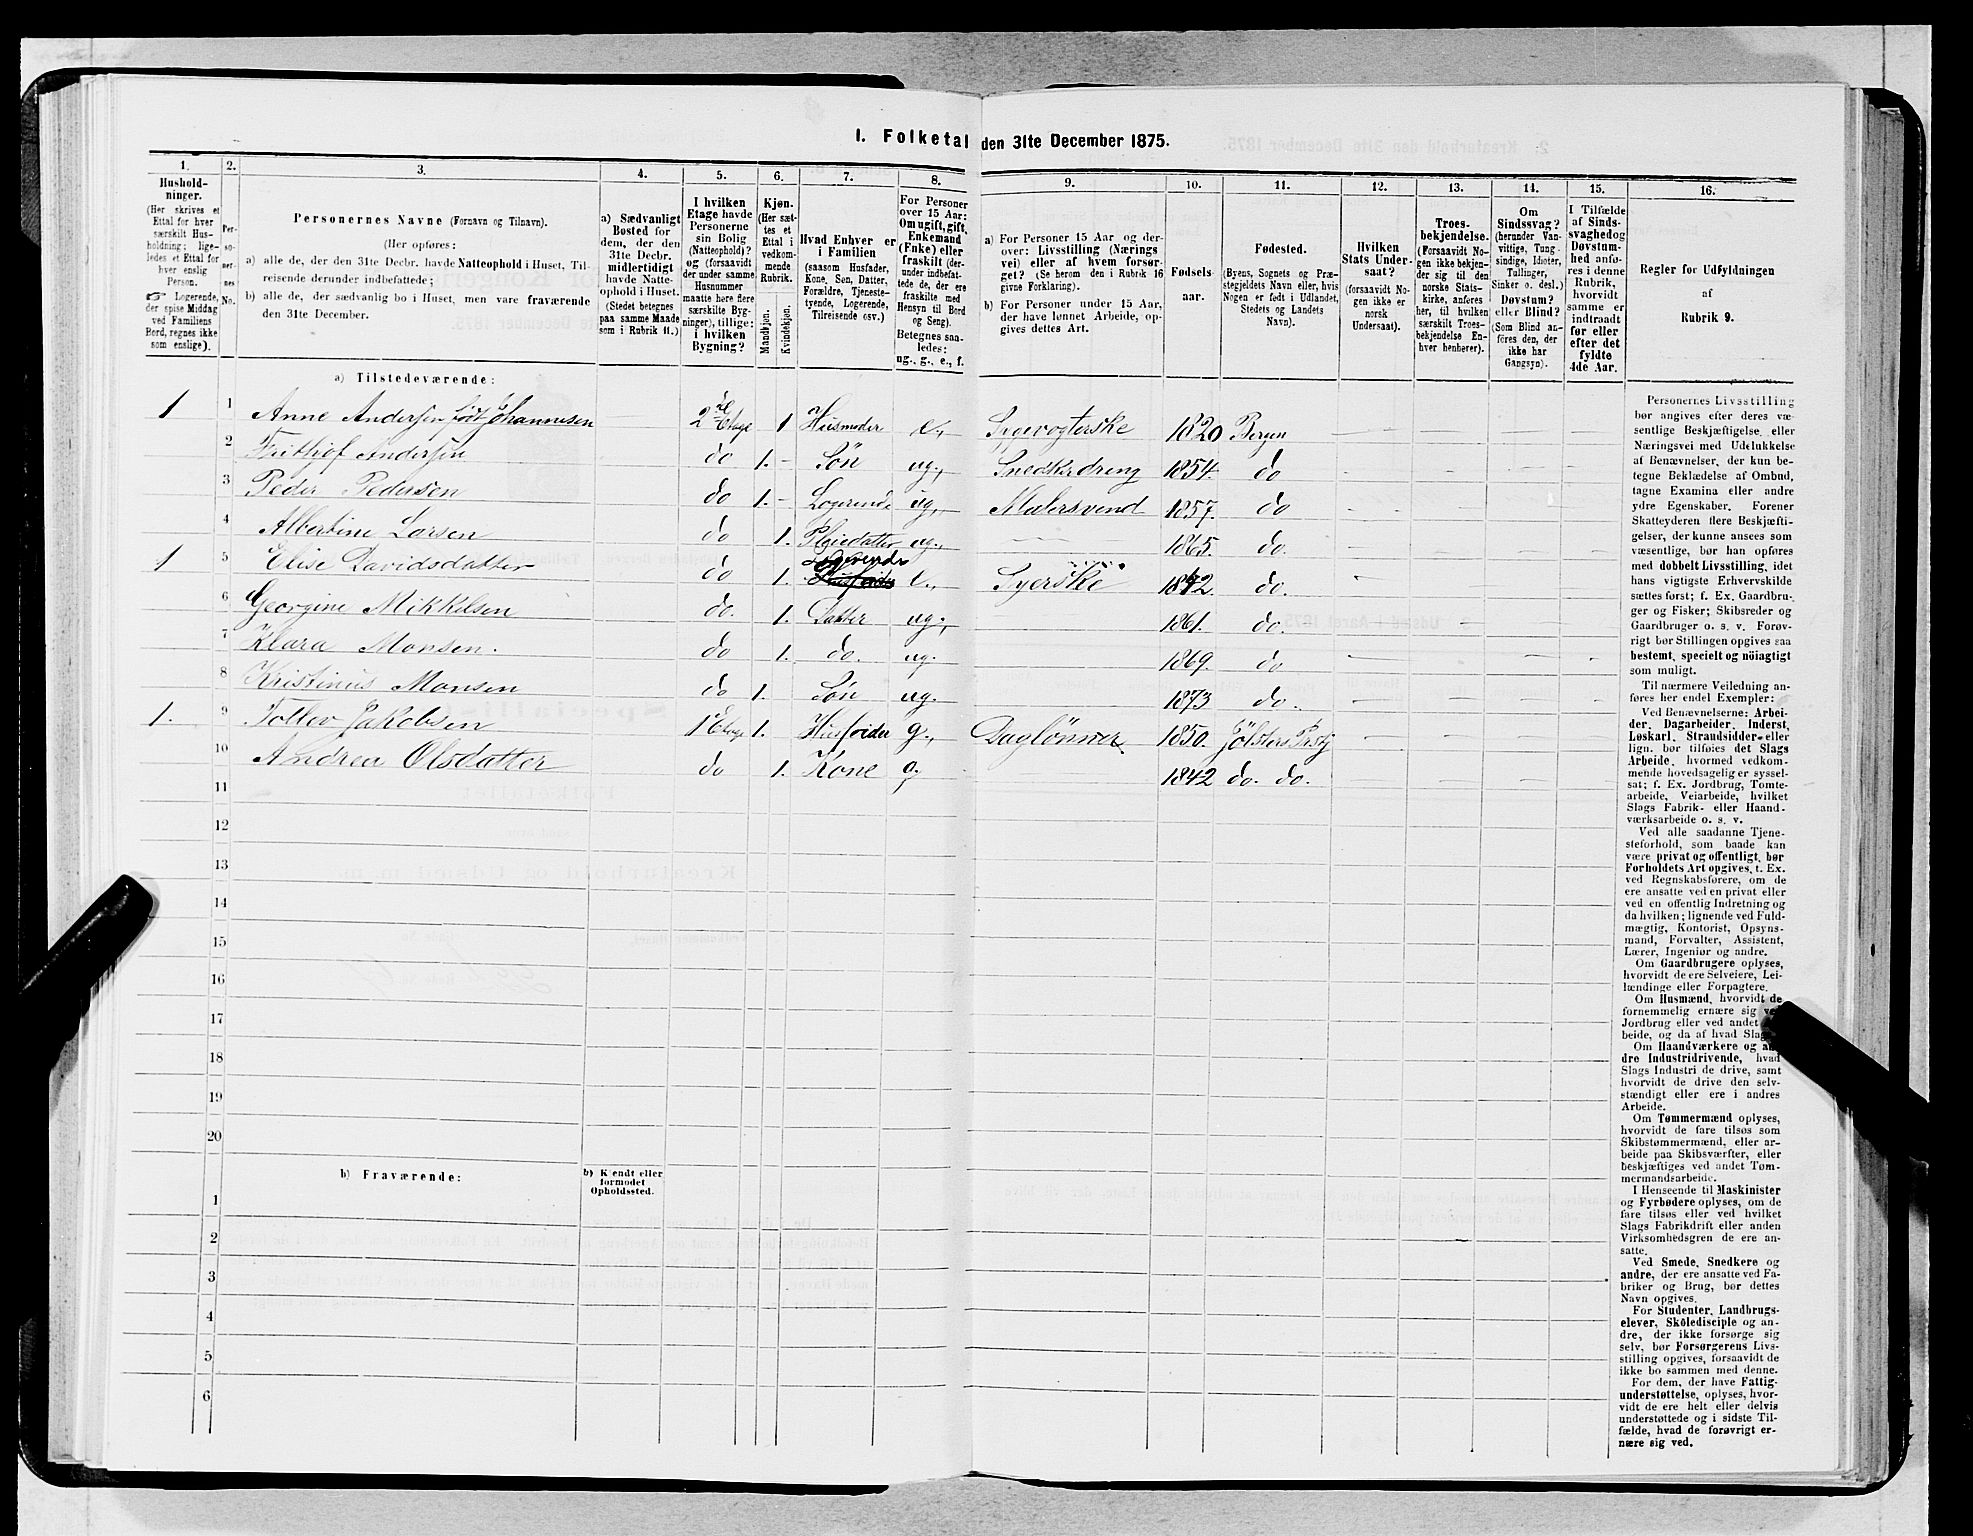 1. Folketal den 31te December 1875.
1.
Hushold-
ninger.
(Her skrives et
Ettal for hver
særskilt Hus-
holdning; lige-
ledes et Ettal for
hver enslig
Person.
☞ Logerende,
der spise Middag
ved Familiens
Bord, regnes ikke
som enslige).
2.
Per-
so-
ner-
nes
No.
3.
Personernes Navne (Fornavn og Tilnavn).
(Her opføres:
a) alle de, der den 31te Decbr. havde Natteophold i Huset, Til-
reisende derunder indbefattede;
b) alle de, der sædvanlig bo i Huset, men vare fraværende
den 31te December.
4.
a) Sædvanligt
Bosted for
dem, der den
31te Decbr.
midlertidigt
havde Natte-
ophold i Huset.
(Stedet betegnes
paa samme Maade
som i Rubrik 11.)
5.
I hvilken
Etage havde
Personerne
sin Bolig
(Natteophold)?
og (forsaavidt
der under samme
Husnummer
maatte høre flere
særskilte Byg-
ninger), tillige:
i hvilken
Bygning?
6.
Kjøn.
(Her sæt-
tes et
Ettal i
vedkom-
mende
Rubrik.
Mandkjøn.
Kvindekjøn.
7.
Hvad Enhver er
i Familien
(saasom Husfader,
Kone, Søn, Datter,
Forældre, Tjeneste-
tyende, Logerende,
Tilreisende osv.)
8.
For Personer
over 15 Aar:
Om ugift, gift,
Enkemand
(Enke) eller
fraskilt (der-
under indbefat-
tede de, der ere
fraskilte med
Hensyn til Bord
og Seng).
Betegnes saa-
ledes:
ug., g., e., f.
9.
a) For Personer 15 Aar og der-
over: Livsstilling (Nærings
vei) eller af hvem forsør-
get? (Se herom den i Rubrik 16
givne Forklaring).
b) For Personer under 15 Aar,
der have lønnet Arbeide, op-
gives dettes Art.
10.
Fødsels-
aar.
11.
Fødested.
(Byens, Sognets og Præ-
stegjeldets Navn eller, hvis
Nogen er født i Udlandet,
Stedets og Landets
Navn).
12.
Hvilken
Stats Under-
saat?
(forsaavidt No-
gen ikke er
norsk
Undersaat).
13.
Troes-
bekjendelse.
(Forsaavidt No-
gen ikke bekjen-
der sig til den
norske Stats-
kirke, anføres
her, til hvilken
særskilt Troes-
bekjendelse En-
hver henhører).
14.
Om
Sindssvag?
(herunder Van-
vittige, Tung-
sindige, Idioter,
Tullinger,
Sinker o. desl.)
Døvstum?
eller Blind?
(Som Blind an-
føres den, der
ikke har
Gangsyn).
15.
I Tilfælde
af Sinds-
svaghed og
Døvstum-
hed anfø-
res i denne
Rubrik,
hvorvidt
samme er
indtraadt
før eller
efter det
fyldte
4de Aar.
16.
Regler for Udfyldningen
af
Rubrik 9.
a) Tilstedeværende:
1 1 Anne Andersen født Johannesen 2den Etage 1 Husmoder e., Sygevogterske 1820 Bergen
2 Frithiof Andersen do 1. Søn ug., Snedkerdreng 1854. do
3 Peder Pedersen do 1. Logerende ug., Malersvend 1857. do
4 Albertine Larsen do 1. Pleiedatter ug., 1865. do.
1 5 Elise Davidsdatter do 1. Logerende e., Syerske 1842 do.
6 Georgine Mikkelsen do. 1. Datter ug., 1861. do.
7 Klara Monsen. do 1. do. ug. 1869. do
8 Kristinus Monsen do 1. Søn ug. 1873 do.
1. 9 Tollev Jakobsen 1 Etage 1. Husfader g., Daglønner 1850. Jølsters Prstgj
10 Andrea Olsdatter do 1. Kone g 1842 do. do.
11
12
13
14
15
16
17
18
19
20
b) Fraværende:
b) Kjendt eller
formodet
Opholdssted.
1
2
3
4
5
6
Personernes Livsstilling
bør angives efter deres væ-
sentlige Beskjæftigelse eller
Næringsvei med Udelukkelse
af Benævnelser, der kun be-
tegne Beklædelse af Ombud,
tagne Examina eller andre
ydre Egenskaber. Forener
Skatteyderen flere Beskjæfti-
gelser, der kunne ansees som
væsentlige, bør han opføres
med dobbelt Livsstilling, idet
hans vigtigste Erhvervskilde
sættes først; f. Ex. Gaardbru-
ger og Fisker; Skibsreder og
Gaardbruger o. s. v. Forøv-
rigt bør Stillingen opgives saa
bestemt, specielt og nøiagtigt
som muligt.
Til nærmere Veiledning an-
føres her endel Exempler:
Ved Benævnelserne: Arbei-
der, Dagarbeider, Inderst,
Løskarl, Strandsidder eller
lign. bør tilføies det Slags
Arbeide, hvormed vedkom-
mende hovedsagelig er syssel-
sat; f. Ex. Jordbrug, Tomte-
arbeide, Veiarbeide, hvilket
Slags Fabrik- eller Haand-
værksarbeide o. s. v.
Ved alle saadanne Tjene-
steforhold, som baade kan
være privat og offentligt, bør
Forholdets Art opgives, t. Ex.
ved Regnskabsførere, om de
ere ansatte ved en privat eller
ved en offentlig Indretning og
da hvilken; lignende ved Fuld-
mægtig, Kontorist, Opsyns-
mand, Forvalter, Assistent,
Lærer, Ingeniør og andre.
Om Gaardbrugere oplyses,
hvorvidt de ere Selveiere, Lei-
lændinge eller Forpagtere.
Om Husmænd, hvorvidt de
fornemmelig ernære sig ved
Jordbrug eller ved andet
beide, og da af hvad Slags.
Om Haandværkere og an-
dre Industridrivende, hvad
Slags Industri de drive, samt
hvorvidt de drive den selv-
stændigt eller ere i andres
Arbeide.
Om Tømmermænd oplyses,
hvorvidt de fare tilsøs som
Skibstømmermænd, eller ar-
beide paa Skibsværfter, eller
beskjæftiges ved andet Tøm-
mermandsarbeide.
I Henseende til Maskinister
og Fyrbødere oplyses, om de
fare tilsøs eller ved hvilket
Slags Fabrikdrift eller anden
Virksomhedsgren de ere an-
satte.
Ved Smede, Snedkere og
andre, der ere ansatte ved Fa-
briker og Brug, bør dettes
Navn opgives.
For Studenter, Landbrugs-
elever, Skoledisciple og an-
dre, der ikke forsørge sig
selv, bør Forsørgerens Livs-
stilling opgives, forsaavidt de
ikke bo sammen med denne.
For dem, der have Fattig-
understøttelse, oplyses, hvor-
vidt de ere helt eller delvis
understøttede og i sidste Til-
fælde, hvad de forøvrigt er-
nære sig ved.